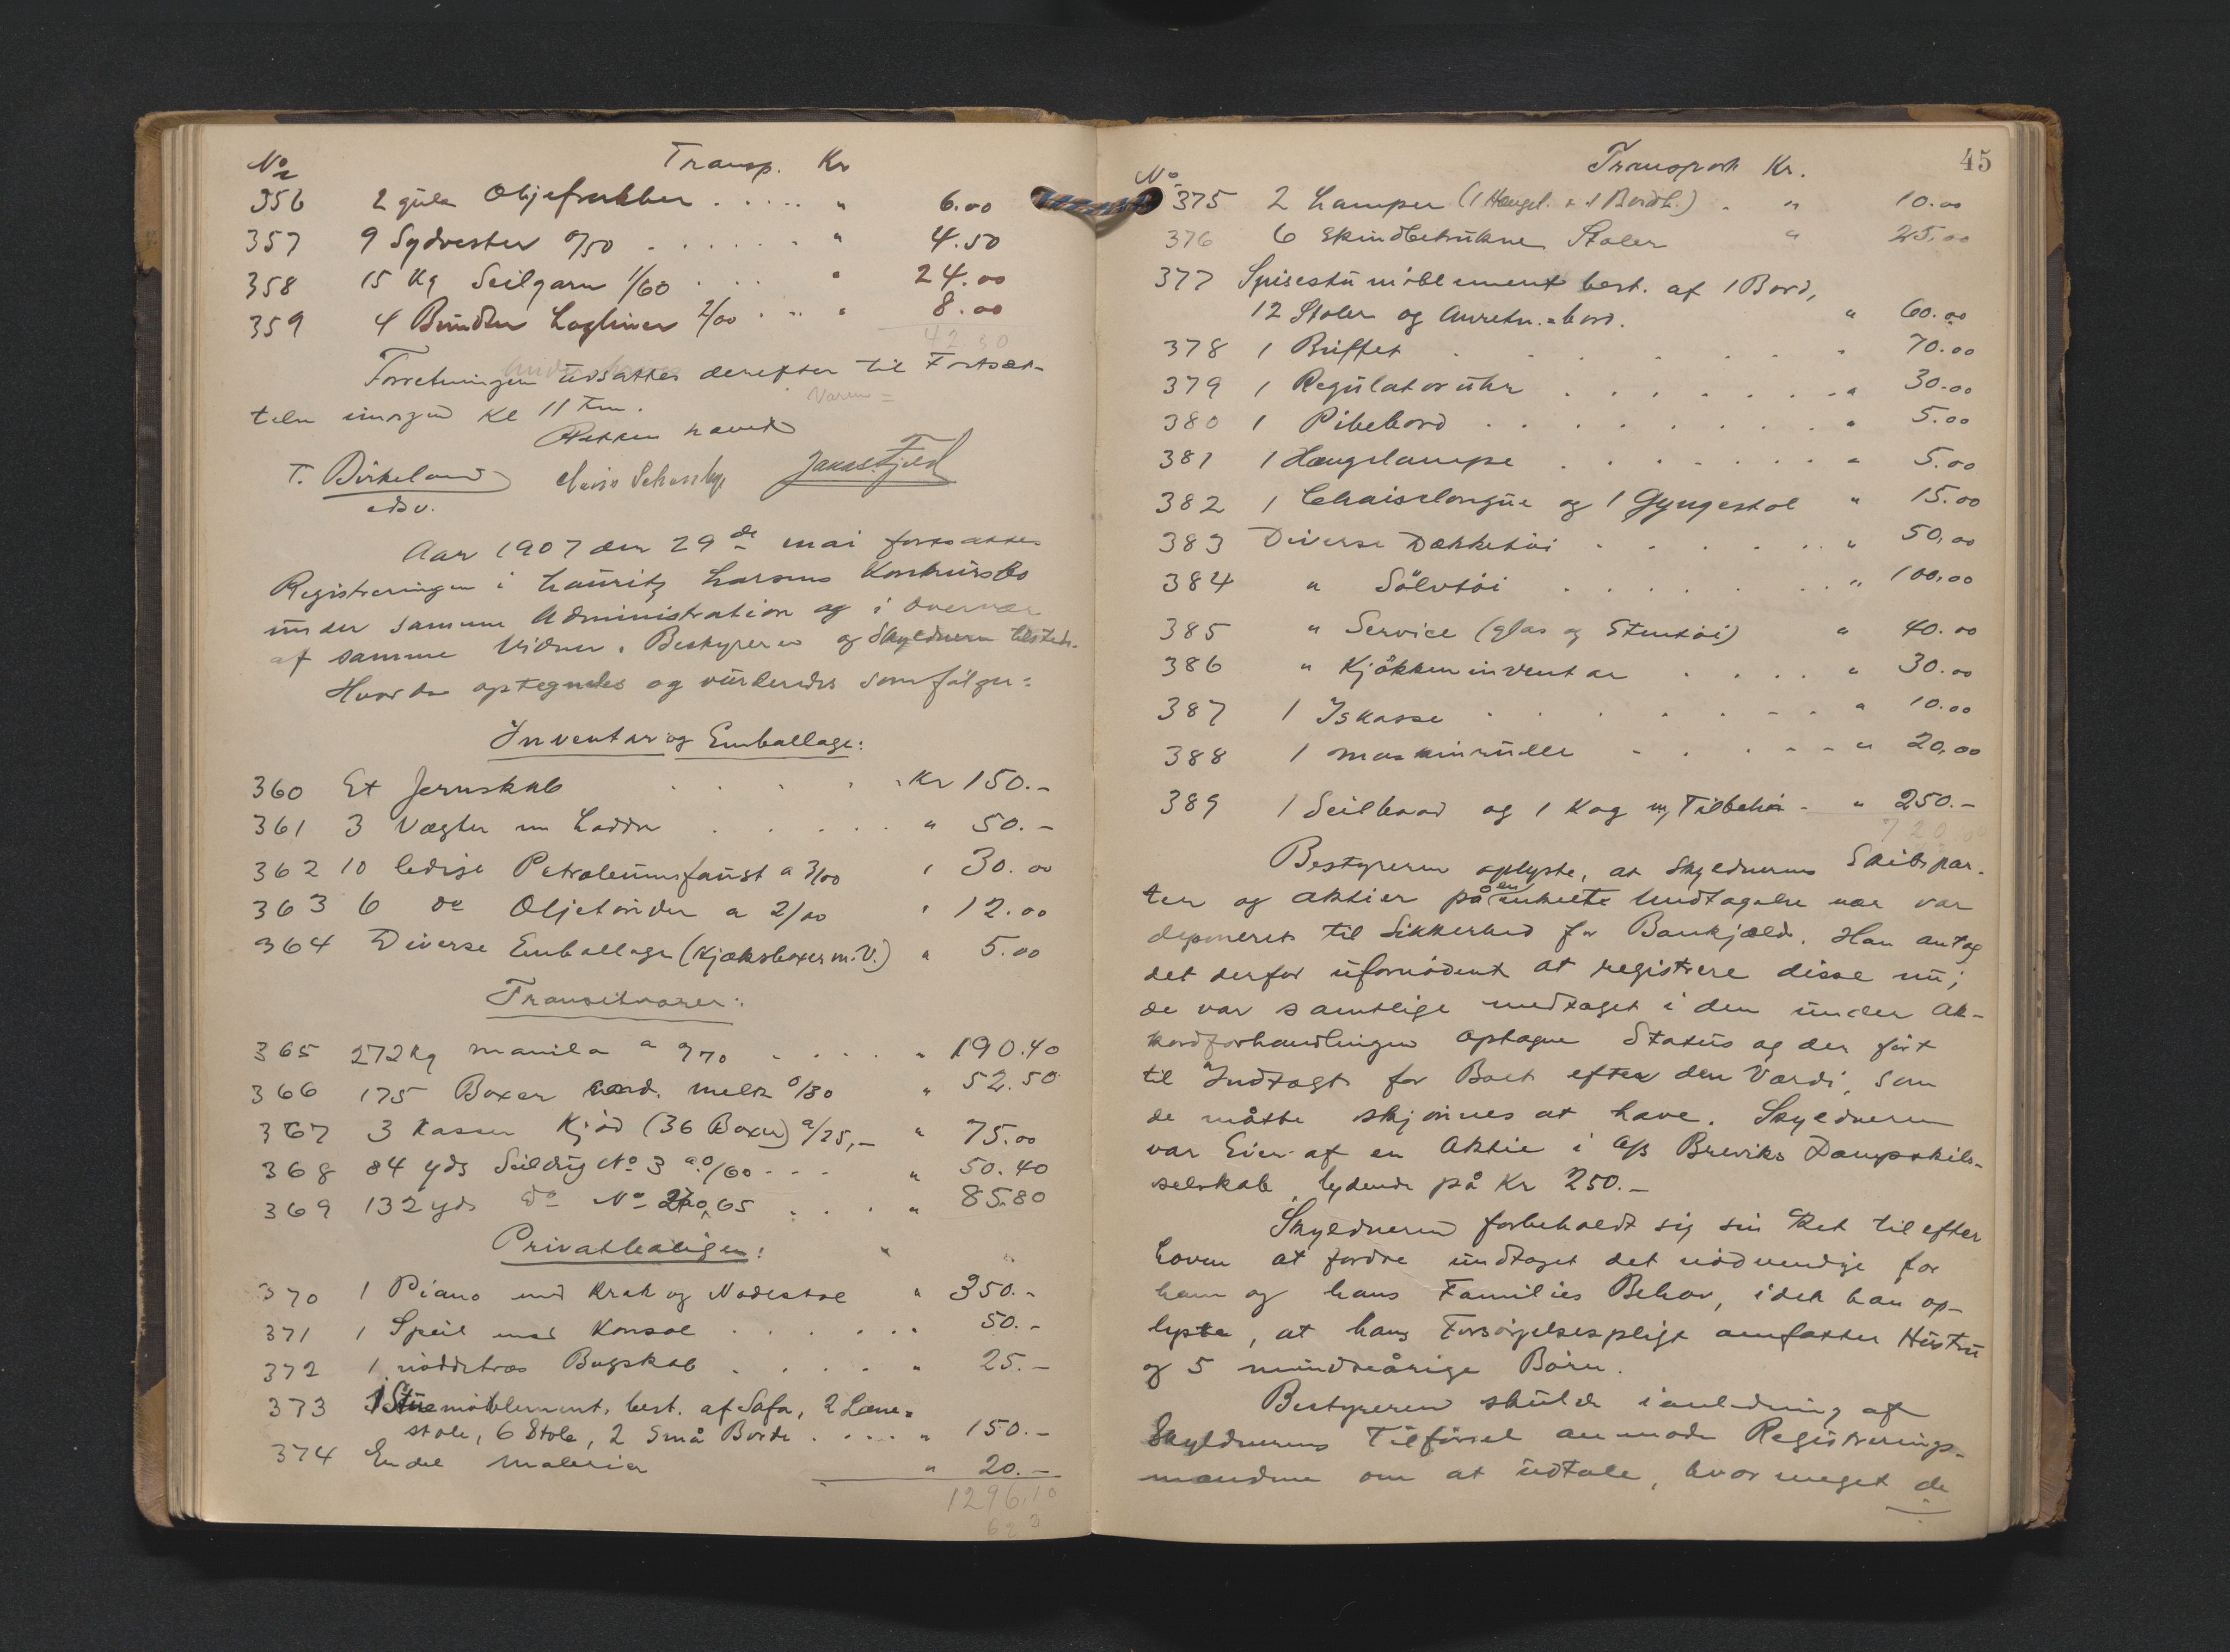 No Transp. Kr
356 2 gule Oljefrakker . . . . . " 6.00
357 9 Sydvester 0/50 . . . . . . . " 4.50
358 15 Kg Seilgarn 1/60 . . . . " 24.00
359 4 Bundter Logliner 2/00 . . . " 8.00
42.50
Forretningen udsattes derefter til Fortsæt-
telse imorgen Kl 11 Fm.
Varer =
Retten hævet
T. Birkeland Jakob Fjeld
edsv.
Aar 1907 den 29de mai fortsattes
Registreringen i Lauritz Larsens Konkursbo
under samme Administration og i Overvær
af samme Vidner. Bestyreren og Skyldneren tilstede.
Hvorda optegnedes og vurderedes som følger:
Inventar og Emballage:
360 Et Jernskab . . . . . Kr 150.-
361 3 Vægter m Lodder . . . . . " 50.-
362 10 ledige Petroleumsfaust a 3/00 " 30.00
363 6 do Oljetønder a 2/00 " 12.00
364 Diverse Emballage (Kjæksboxer m.V.) " 5.00
Transitvarer:
365 272 Kg manila a 0/70 . . . . " 190.40
366 175 Boxer cond. melk 0/30 " 52.50
367 3 Kasser Kjød (36 Boxer) a/25,- " 75.00
368 84 yds Seildug No 3 a 0/60 . . . " 50.40
369 132 yds do No 2 0,65 . . . . " 85.80
Privatboligen:
370 1 Piano med Krak og Nodestol " 350.-
371 1 Speil med Konsol . . . . . . . 50.-
372 1 nøddetræs Bogskab . . . . . " 25.-
373 1 Stuemøblement, best. af Sofa, 2 Læne=
stole, 6 Stole, 2 Små Borde . . . . " 150.-
374 En del Malerier " 20.-
1296.10
62
45
No Transport Kr.
375 2 Lamper (1 Hængel. & 1 Bordl.) . " 10.00
376 6 Skindbetrukne Stoler " 25.00
377 Spisestumøblement best. af 1 Bord,
12 Stoler og Anretn.=bord. " 60.00
378 1 Buffet . . . . . . . . " 70.00
379 1 Regulatoruhr . . . . . . . " 30.00
380 1 Pibebord . . . . . . . . . " 5.00
381 1 Hængelampe . . . . . . . " 5.00
382 1 Chaiselongue og 1 Gyngestol " 15.00
383 Diverse Dækketøi . . . . . . " 50.00
384 " Sölvtøi . . . . . . . " 100.00
385 " Service (glas og Stentøi) " 40.00
386 " Kjökkeninventar . . . . " 30.00
387 1 Iskasse . . . . . . . . " 10.00
388 1 maskinrulle . . . . . . " 20.00
389 1 Seilbaad og 1 Kag m/ Tilbehør - " 250.-
720.00
Bestyreren oplyste, at Skyldnerens Skibspar-
ter og aktier på en enkelte Undtagelse nær var
deponeret til Sikkerhed for Bankjæld. Han antog
det derfor ufornödent at registrere disse nu;
de var samtlige medtaget i den under Ak-
kordforhandlingen optagne Status og der ført
til Indtægt for Boet efter den Værdi, som
de måtte skjønnes at have. Skyldneren
var Eier af en Aktie i A/S Breviks Dampskibs-
selskab lydende på Kr 250.-
Skyldneren forbeholdt sig sin Ret til efter
Loven at fordre undtaget det nödvendige for
ham og hans Families Behov, idet han op-
lyste, at hans Forsørgelsespligt omfatter Hustru
og 5 mindreårige Börn.
Bestyreren skulde i anledning af
Skyldnerens Tilförsel anmode Registrerings-
mændene om at udtale, hvor meget de